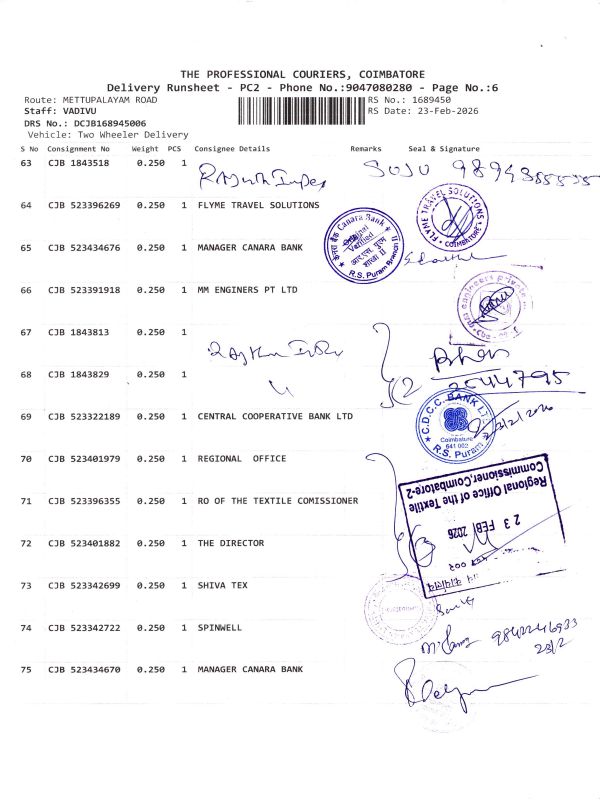 THE PROFESSIONAL COURIERS, COIMBATORE
Delivery Runsheet - PC2 - Phone No.:9047080280 - Page No.:6
Route: METTUPALAYAM ROAD RS No.: 1689450
Staff: VADIVU RS Date: 23-Feb-2026
DRS No.: DCJB168945006
Vehicle: Two Wheeler Delivery
S No Consignment No Weight PCS Consignee Details Remarks Seal & Signature
63 CJB 1843518 0.250 1
64 CJB 523396269 0.250 1 FLYME TRAVEL SOLUTIONS
FLYME TRAVEL SOLUTIONS
COIMBATORE
65 CJB 523434676 0.250 1 MANAGER CANARA BANK
केनरा बैंक Canara Bank
Original
Verified
आर.एस. पुरम
शाखा II
R.S. Puram Branch II
66 CJB 523391918 0.250 1 MM ENGINERS PT LTD
67 CJB 1843813 0.250 1
68 CJB 1843829 0.250 1
2544795
69 CJB 523322189 0.250 1 CENTRAL COOPERATIVE BANK LTD
C.D.C.C. BANK LTD
Coimbatore
641 002
R.S. Puram
70 CJB 523401979 0.250 1 REGIONAL OFFICE
71 CJB 523396355 0.250 1 RO OF THE TEXTILE COMISSIONER
Regional Office of the Textile
Commissioner, Coimbatore-2
23 FEB 2026
72 CJB 523401882 0.250 1 THE DIRECTOR
73 CJB 523342699 0.250 1 SHIVA TEX
74 CJB 523342722 0.250 1 SPINWELL
9842246933
23/2
75 CJB 523434670 0.250 1 MANAGER CANARA BANK